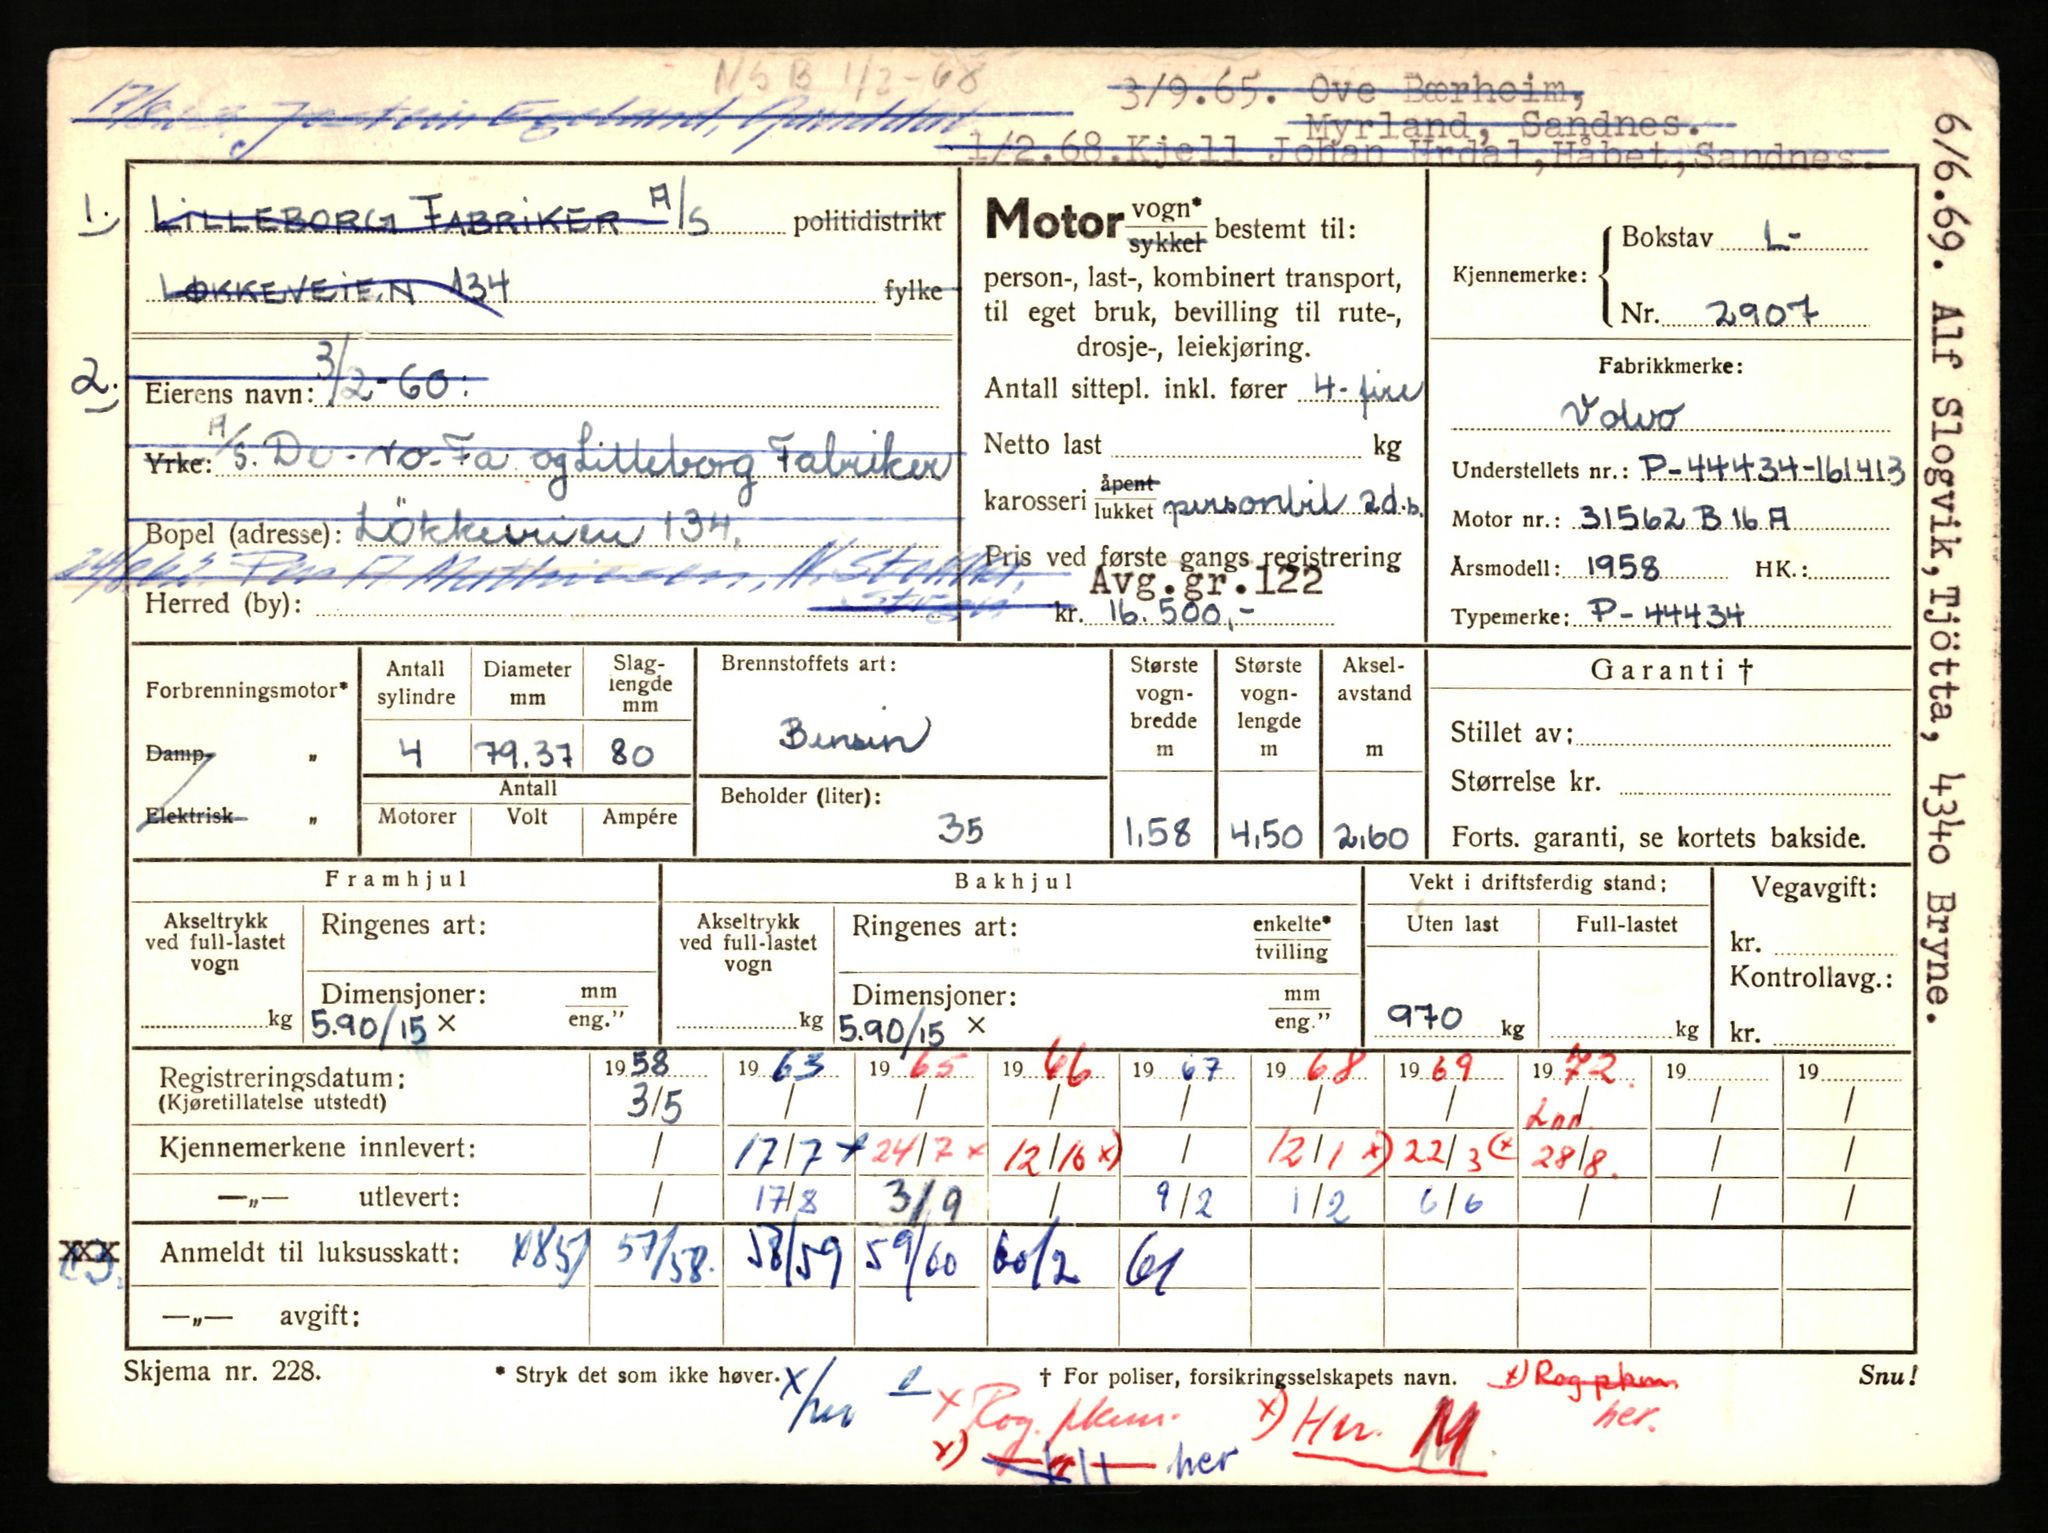 NSB 1/2-68
3/9.65. Ove Bærheim,
Myrland, Sandnes.
1/2.68. Kjell Johan Urdal, Håbet, Sandnes.
Jostein Egeland,
6/6.69. Alf Slogvik, Tjötta, 4340 Bryne.
1. LILLEBORG FABRIKER A/S politidistrikt
LØKKEVEIEN 134 fylke
2. Eierens navn: 3/2-60:
Yrke: A/S. De-No-Fa og Lilleborg Fabriker
Bopel (adresse): Lökkeveien 134.
Per A Mathiesen,
Herred (by):
Motor vogn* sykkel bestemt til:
person-, last-, kombinert transport,
til eget bruk, bevilling til rute-,
drosje-, leiekjøring.
Antall sittepl. inkl. fører 4- fire
Netto last kg
karosseri åpent lukket personbil 2d.b.
Pris ved første gangs registrering
Avg.gr.122
kr. 16.500,-
Kjennemerke: Bokstav L-
Nr. 2907
Fabrikkmerke:
Volvo
Understellets nr.: P-44434-161413
Motor nr.: 31562 B 16 A
Årsmodell: 1958 HK.:
Typemerke: P-44434
Forbrenningsmotor*
Damp- „
Elektrisk „
Antall sylindre 4
Diameter mm 79.37
Slag-lengde mm 80
Antall
Motorer Volt Ampére
Brennstoffets art:
Bensin
Beholder (liter):
35
Største vogn-bredde m 1,58
Største vogn-lengde m 4,50
Aksel-avstand m 2.60
Garanti †
Stillet av:
Størrelse kr.
Forts. garanti, se kortets bakside.
Framhjul
Akseltrykk ved full-lastet vogn kg
Ringenes art:
Dimensjoner: mm eng.”
5.90/15 ×
Bakhjul
Akseltrykk ved full-lastet vogn kg
Ringenes art: enkelte* tvilling
Dimensjoner: mm eng.”
5.90/15 ×
Vekt i driftsferdig stand:
Uten last Full-lastet
970 kg kg
Vegavgift:
kr.
Kontrollavg.:
kr.
Registreringsdatum: 1958 1963 1965 1966 1967 1968 1969 1972. 19 19
(Kjøretillatelse utstedt) 3/5 / / / / / / / / /
Lnn.
Kjennemerkene innlevert: / 17/7 x 24/7 x 12/10 x) / 12/1 x) 22/3 (x 28/8. / /
—„— utlevert: / 17/8 3/9 / 9/2 1/2 6/6 / / /
xxx 3. Anmeldt til luksusskatt: 57/58. 58/59 59/60 60/2 61
—„— avgift:
Skjema nr. 228. * Stryk det som ikke høver. † For poliser, forsikringsselskapets navn. x) Rog pkm. Snu!
x/her x Rog. pkm. x) Her. her.
x) —„— her